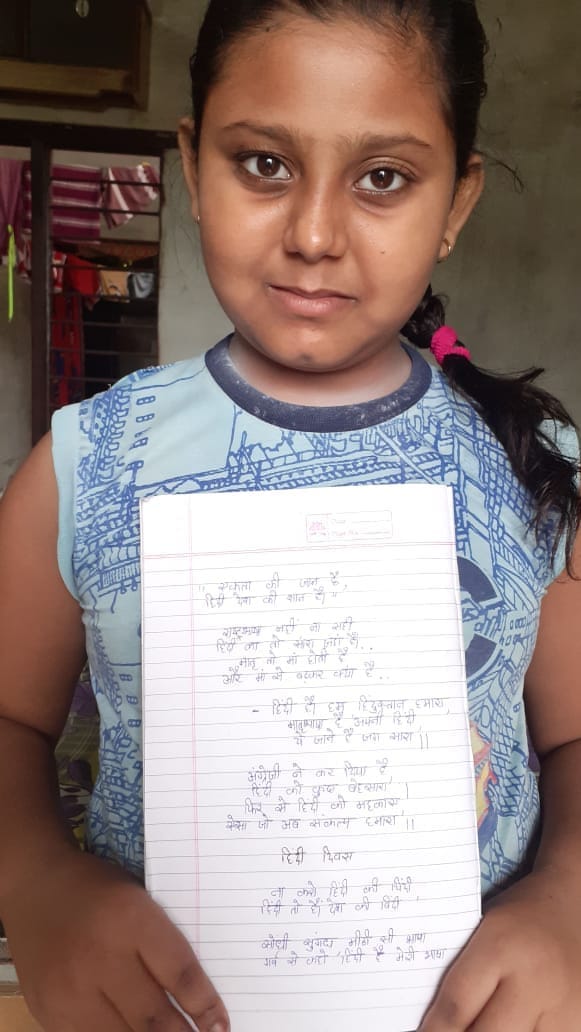 " एकता की जान है,
हिंदी देश की शान है। "
राष्ट्रभाषा नहीं ना सही
हिंदी का तो सारा जहाँ है..
मातृ तो मां होती है
और मां से बढ़कर क्या है..
- हिंदी है। हम हिंदुस्तान हमारा,
मातृभाषा है अपनी हिंदी,
ये जाने है जग सारा ||
अंग्रेजी ने कर दिया है,
हिंदी को कुछ बेसहारा |
फिर से हिंदी को
ऐसा जो अब संकल्प हमारा ||
हिंदी दिवस
ना करो हिंदी की चिंदी
हिंदी तो है। देश की बिंदी
सोंधी सुगंध मीठी सी भाषा
गर्व से कहो हिंदी है मेरी भाषा